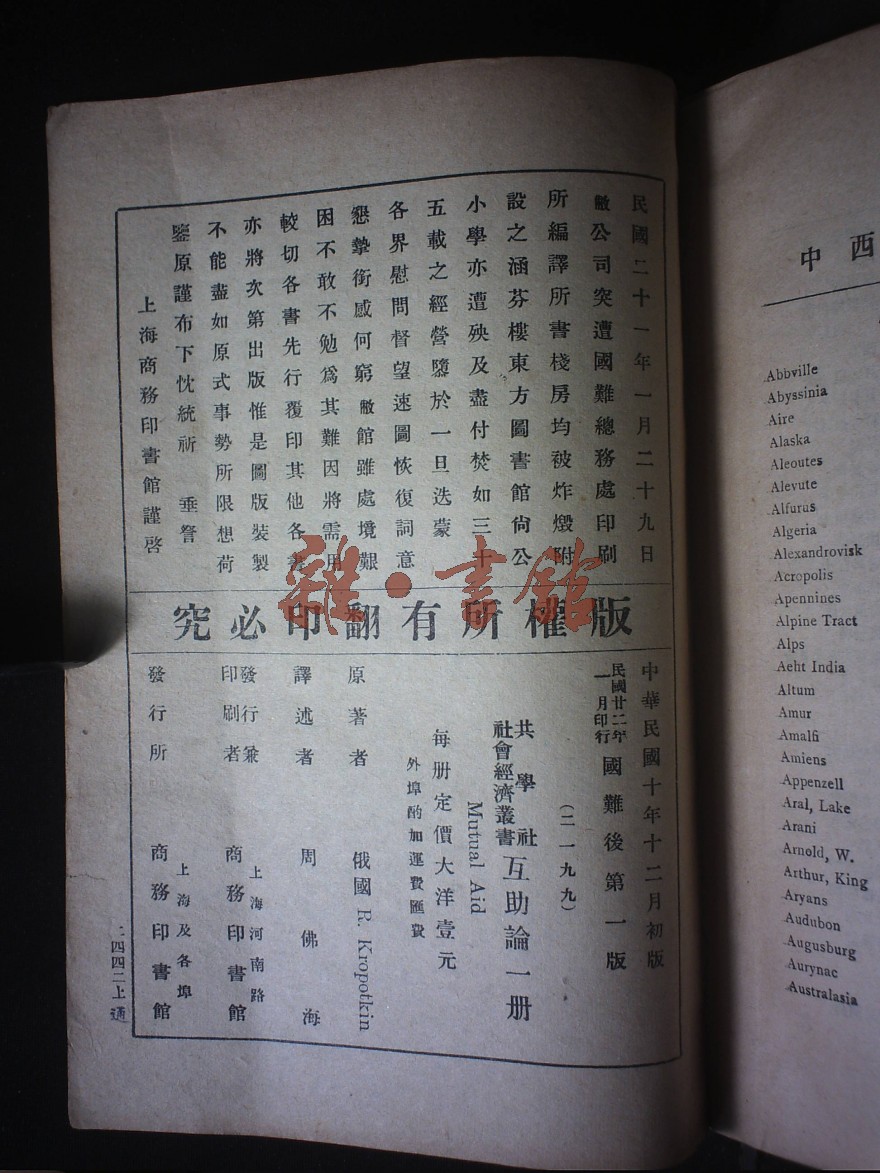 民國二十一年一月二十九日
敝公司突遭國難總務處印刷
所編譯所書棧房均被炸燬附
設之涵芬樓東方圖書館尙公
小學亦遭殃及盡付焚如三十
五載之經營隳於一旦迭蒙
各界慰問督望速圖恢復詞意
懇摯銜感何窮敝館雖處境艱
困不敢不勉爲其難因將需用
較切各書先行覆印其他各書
亦將次第出版惟是圖版裝製
不能盡如原式事勢所限想荷
鑒原謹布下忱統祈 垂詧
上海商務印書館謹啓
雜·書館
版權所有翻印必究
中華民國十年十二月初版
民國廿二年一月印行 國難後第一版
(二一九九)
共學社社會經濟叢書 互助論一册
Mutual Aid
每册定價大洋壹元
外埠酌加運費匯費
原著者 俄國 R. Kropotkin
譯述者 周佛海
發行兼印刷者 上海河南路 商務印書館
發行所 上海及各埠 商務印書館
二四四二上 通
中西
Abbville
Abyssinia
Aire
Alaska
Aleoutes
Alevute
Alfurus
Algeria
Alexandrovisk
Acropolis
Apennines
Alpine Tract
Alps
Aeht India
Altum
Amur
Amalfi
Amiens
Appenzell
Aral, Lake
Arani
Arnold, W.
Arthur, King
Aryans
Audubon
Augusburg
Aurynac
Australasia